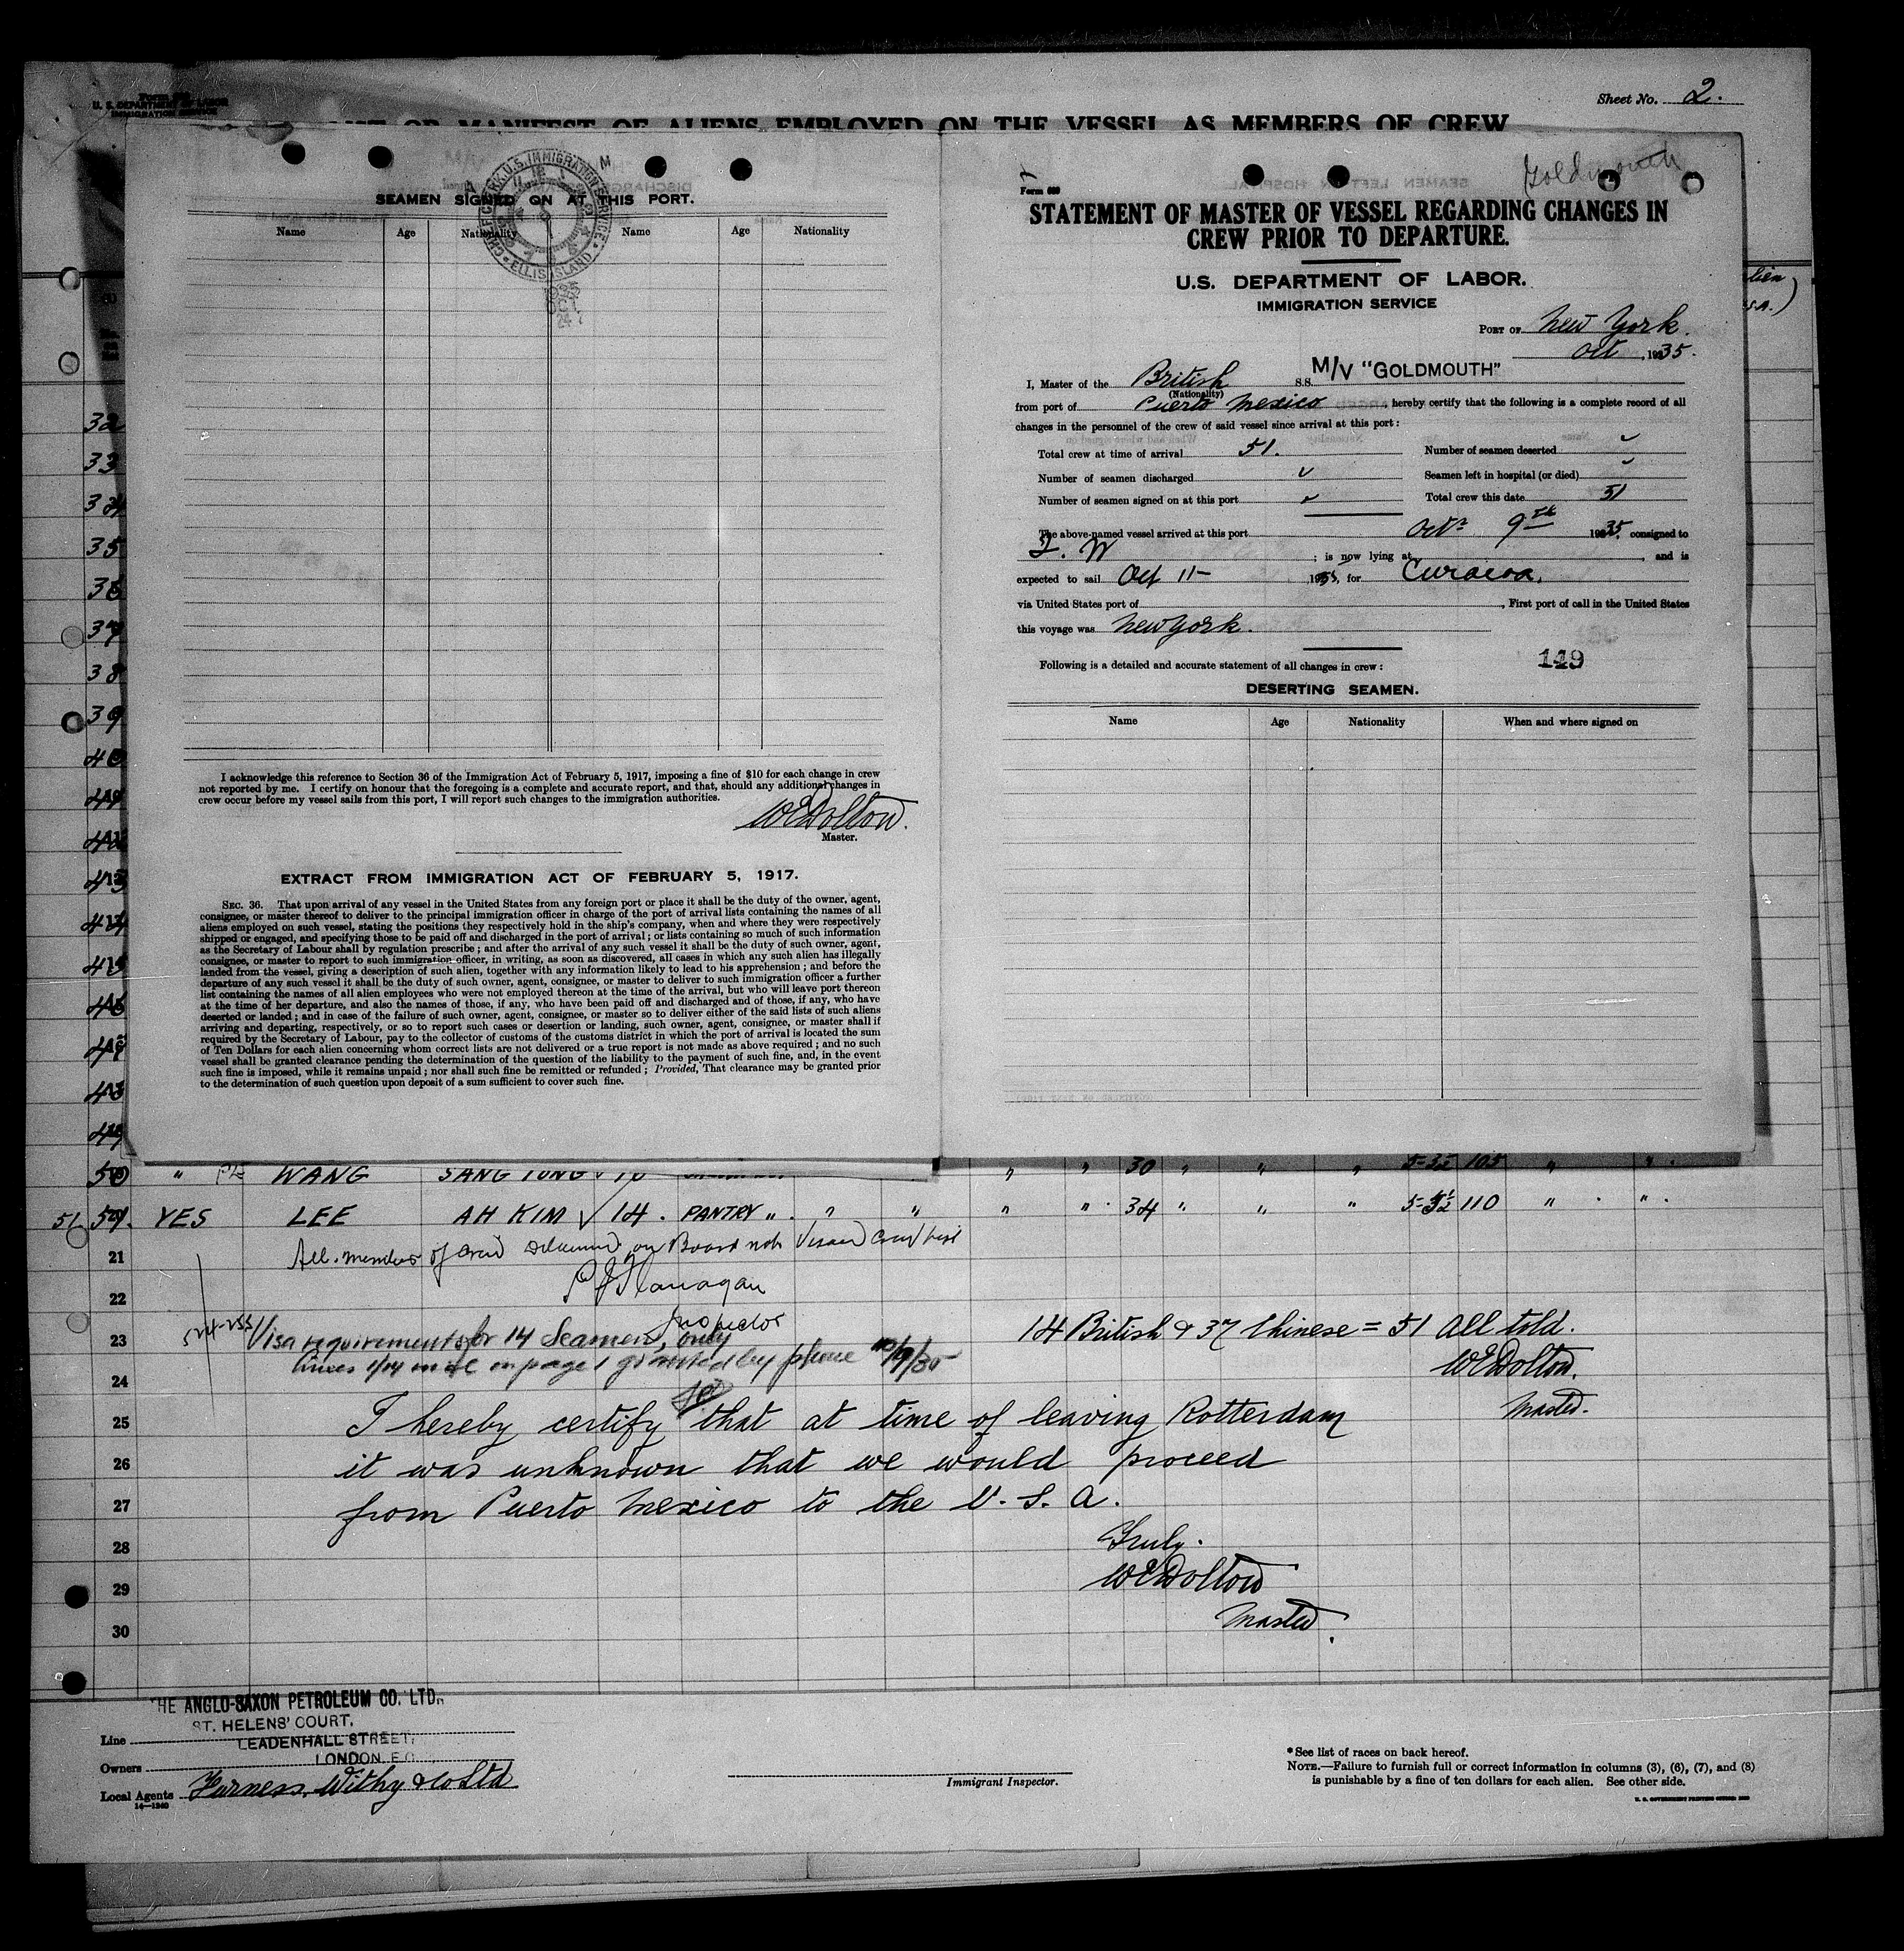 U. S. DEPARTMENT OF LABOR
IMMIGRATION SERVICE
Sheet No. 2.
OR MANIFEST OF ALIENS EMPLOYED ON THE VESSEL AS MEMBERS OF CREW
SEAMEN SIGNED ON AT THIS PORT.
Name Age Nationality Name Age Nationality
U.S. IMMIGRATION SERVICE
ELLIS ISLAND
I acknowledge this reference to Section 36 of the Immigration Act of February 5, 1917, imposing a fine of $10 for each change in crew
not reported by me. I certify on honour that the foregoing is a complete and accurate report, and that, should any additional changes in
crew occur before my vessel sails from this port, I will report such changes to the immigration authorities.
WEDolton.
Master.
EXTRACT FROM IMMIGRATION ACT OF FEBRUARY 5, 1917.
SEC. 36. That upon arrival of any vessel in the United States from any foreign port or place it shall be the duty of the owner, agent,
consignee, or master thereof to deliver to the principal immigration officer in charge of the port of arrival lists containing the names of all
aliens employed on such vessel, stating the positions they respectively hold in the ship's company, when and where they were respectively
shipped or engaged, and specifying those to be paid off and discharged in the port of arrival; or lists containing so much of such information
as the Secretary of Labour shall by regulation prescribe; and after the arrival of any such vessel it shall be the duty of such owner, agent,
consignee, or master to report to such immigration officer, in writing, as soon as discovered, all cases in which any such alien has illegally
landed from the vessel, giving a description of such alien, together with any information likely to lead to his apprehension; and before the
departure of any such vessel it shall be the duty of such owner, agent, consignee, or master to deliver to such immigration officer a further
list containing the names of all alien employees who were not employed thereon at the time of the arrival, but who will leave port thereon
at the time of her departure, and also the names of those, if any, who have been paid off and discharged and of those, if any, who have
deserted or landed; and in case of the failure of such owner, agent, consignee, or master so to deliver either of the said lists of such aliens
arriving and departing, respectively, or so to report such cases or desertion or landing, such owner, agent, consignee, or master shall if
required by the Secretary of Labour, pay to the collector of customs of the customs district in which the port of arrival is located the sum
of Ten Dollars for each alien concerning whom correct lists are not delivered or a true report is not made as above required; and no such
vessel shall be granted clearance pending the determination of the question of the liability to the payment of such fine, and, in the event
such fine is imposed, while it remains unpaid; nor shall such fine be remitted or refunded; Provided, That clearance may be granted prior
to the determination of such question upon deposit of a sum sufficient to cover such fine.
Goldmouth
Form 689
STATEMENT OF MASTER OF VESSEL REGARDING CHANGES IN
CREW PRIOR TO DEPARTURE.
U.S. DEPARTMENT OF LABOR.
IMMIGRATION SERVICE
PORT OF New York.
Oct , 1935.
I, Master of the British S.S. M/V "GOLDMOUTH"
(Nationality)
from port of Puerto Mexico , hereby certify that the following is a complete record of all
changes in the personnel of the crew of said vessel since arrival at this port:
Total crew at time of arrival 51. Number of seamen deserted ✓
Number of seamen discharged ✓ Seamen left in hospital (or died) ✓
Number of seamen signed on at this port ✓ Total crew this date 51
The above-named vessel arrived at this port Oct. 9th 1935, consigned to
F. W ; is now lying at , and is
expected to sail Oct 11- 1935, for Curacoa.
via United States port of , First port of call in the United States
this voyage was New York.
149
Following is a detailed and accurate statement of all changes in crew:
DESERTING SEAMEN.
Name Age Nationality When and where signed on
32
33
34
35
36
37
38
39
40
41
42
43
44
45
46
47
48
49
50 " WANG SANG TUNG " " 30 " " " 5-3½ 105 " "
51 51. YES LEE AH KIM ✓ 14. PANTRY " " " " " 34 " " " 5-5½ 110 " "
21 All members of crew on Board
22 P J Flanagan
Inspector
23 Visa requirements for 14 Seamen, only
lines 1/14 incl on page 1 granted by phone 10/9/35
14 British & 37 Chinese = 51 All told.
WEDolton.
Master.
24
25 I hereby certify that at time of leaving Rotterdam
26 it was unknown that we would proceed
27 from Puerto Mexico to the U. S. A.
28 Truly.
29 WEDolton
Master.
30
THE ANGLO-SAXON PETROLEUM CO. LTD.
ST. HELENS' COURT,
Line LEADENHALL STREET,
Owners LONDON, E.C.
Local Agents Furness, Withy & Co Ltd
14—1240
Immigrant Inspector.
*See list of races on back hereof.
NOTE.—Failure to furnish full or correct information in columns (3), (6), (7), and (8)
is punishable by a fine of ten dollars for each alien. See other side.
U. S. GOVERNMENT PRINTING OFFICE